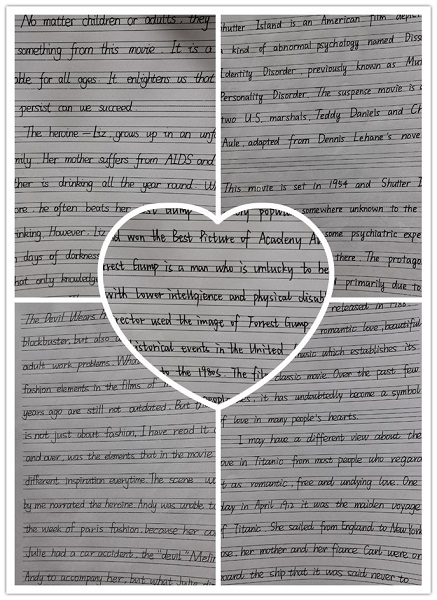 No matter children or adults, they
something from this movie. It is a
ble for all ages. It enlightens us that
persist can we succeed
The heroine — Liz, grows up in an unf
mily. Her mother suffers from AIDS and
ther is drinking all the year round. W
ore, he often beats her
inking. However, Liz
days of darkness
hat only knowledg
hutter Island is an American film
a kind of abnormal psychology named Diss
Identity Disorder, previously known as Mul
Personality Disorder. The suspense movie is a
two U.S. marshals, Teddy Daniels and Ch
Aule, adapted from Dennis Lehane's nove
This movie is set in 1954 and Shutter I
somewhere unknown to the
some psychiatric expe
there. The protago
primarily due to
d won the Best Picture of Academy A
rrest Gump is a man who is unlucky to be
with lower intelligience and physical disab
rector used the image of Forrest Gump
historical events in the United
to the 1980s. The fil
The Devil Wears
blockbuster, but also
adult work problems. Wha
fashion elements in the films of
years ago are still not outdated. But
is not just about fashion, I have read it
and over, was the elements that in the movie
different inspiration everytime. The scene
by me narrated the heroine Andy was unable t
the week of paris fashion because her co
Julie had a car accident. the "devil"
Andy to accompany her, but what
released in
romantic love, beautiful
music which establishes its
classic movie. Over the past few
it has undoubtedly become a symbol
f love in many people's hearts.
I may have a different view about the
ove in Titanic from most people who regard
as romantic, free and undying love. One
day in April 1912 it was the maiden voyage
f Titanic. She sailed from England to New York
ose, her mother and her fiance Carl were on
oard the ship that it was said never to